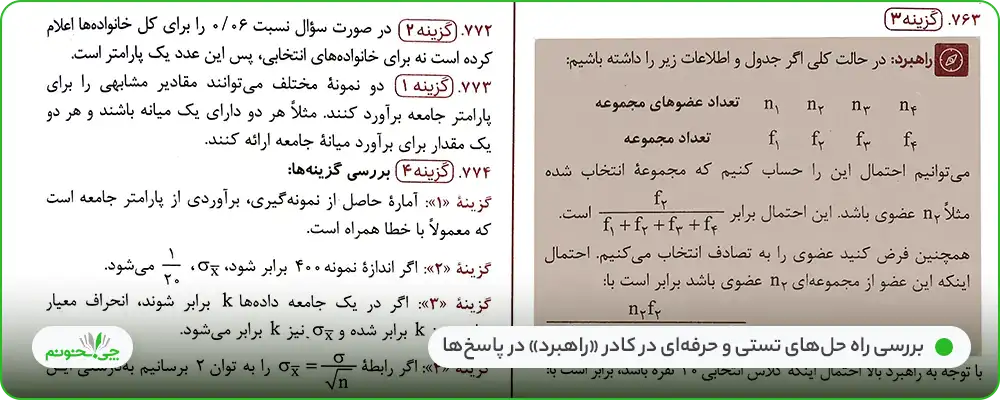 ۷۶۳. گزینه ۳
راهبرد: در حالت کلی اگر جدول و اطلاعات زیر را داشته باشیم:
تعداد عضوهای مجموعه n₁ n₂ n₃ n₄
تعداد مجموعه f₁ f₂ f₃ f₄
می‌توانیم احتمال این را حساب کنیم که مجموعهٔ انتخاب شده
مثلاً n₂ عضوی باشد. این احتمال برابر f₂ / (f₁+f₂+f₃+f₄) است.
همچنین فرض کنید عضوی را به تصادف انتخاب می‌کنیم. احتمال
اینکه این عضو از مجموعه‌ای n₂ عضوی باشد برابر است با:
n₂f₂
با توجه به راهبرد بالا احتمال اینکه کلاس انتخابی ۲۰ نفره باشد، برابر است با:
۷۷۲. گزینه ۲ در صورت سؤال نسبت ۰/۰۶ را برای کل خانواده‌ها اعلام
کرده است نه برای خانواده‌های انتخابی، پس این عدد یک پارامتر است.
۷۷۳. گزینه ۱ دو نمونهٔ مختلف می‌توانند مقادیر مشابهی را برای
پارامتر جامعه برآورد کنند. مثلاً هر دو دارای یک میانه باشند و هر دو
یک مقدار برای برآورد میانهٔ جامعه ارائه کنند.
۷۷۴. گزینه ۴ بررسی گزینه‌ها:
گزینهٔ «۱»: آمارهٔ حاصل از نمونه‌گیری، برآوردی از پارامتر جامعه است
که معمولاً با خطا همراه است.
گزینهٔ «۲»: اگر اندازهٔ نمونه ۴۰۰ برابر شود، σx̄، ۱/۲۰ می‌شود.
گزینهٔ «۳»: اگر در یک جامعه داده‌ها k برابر شوند، انحراف معیار
k برابر شده و σx̄ نیز k برابر می‌شود.
گزینهٔ «۴»: اگر رابطهٔ σx̄ = σ/√n را به توان ۲ برسانیم
بررسی راه حل‌های تستی و حرفه‌ای در کادر «راهبرد» در پاسخ‌ها
چی‌بخونم